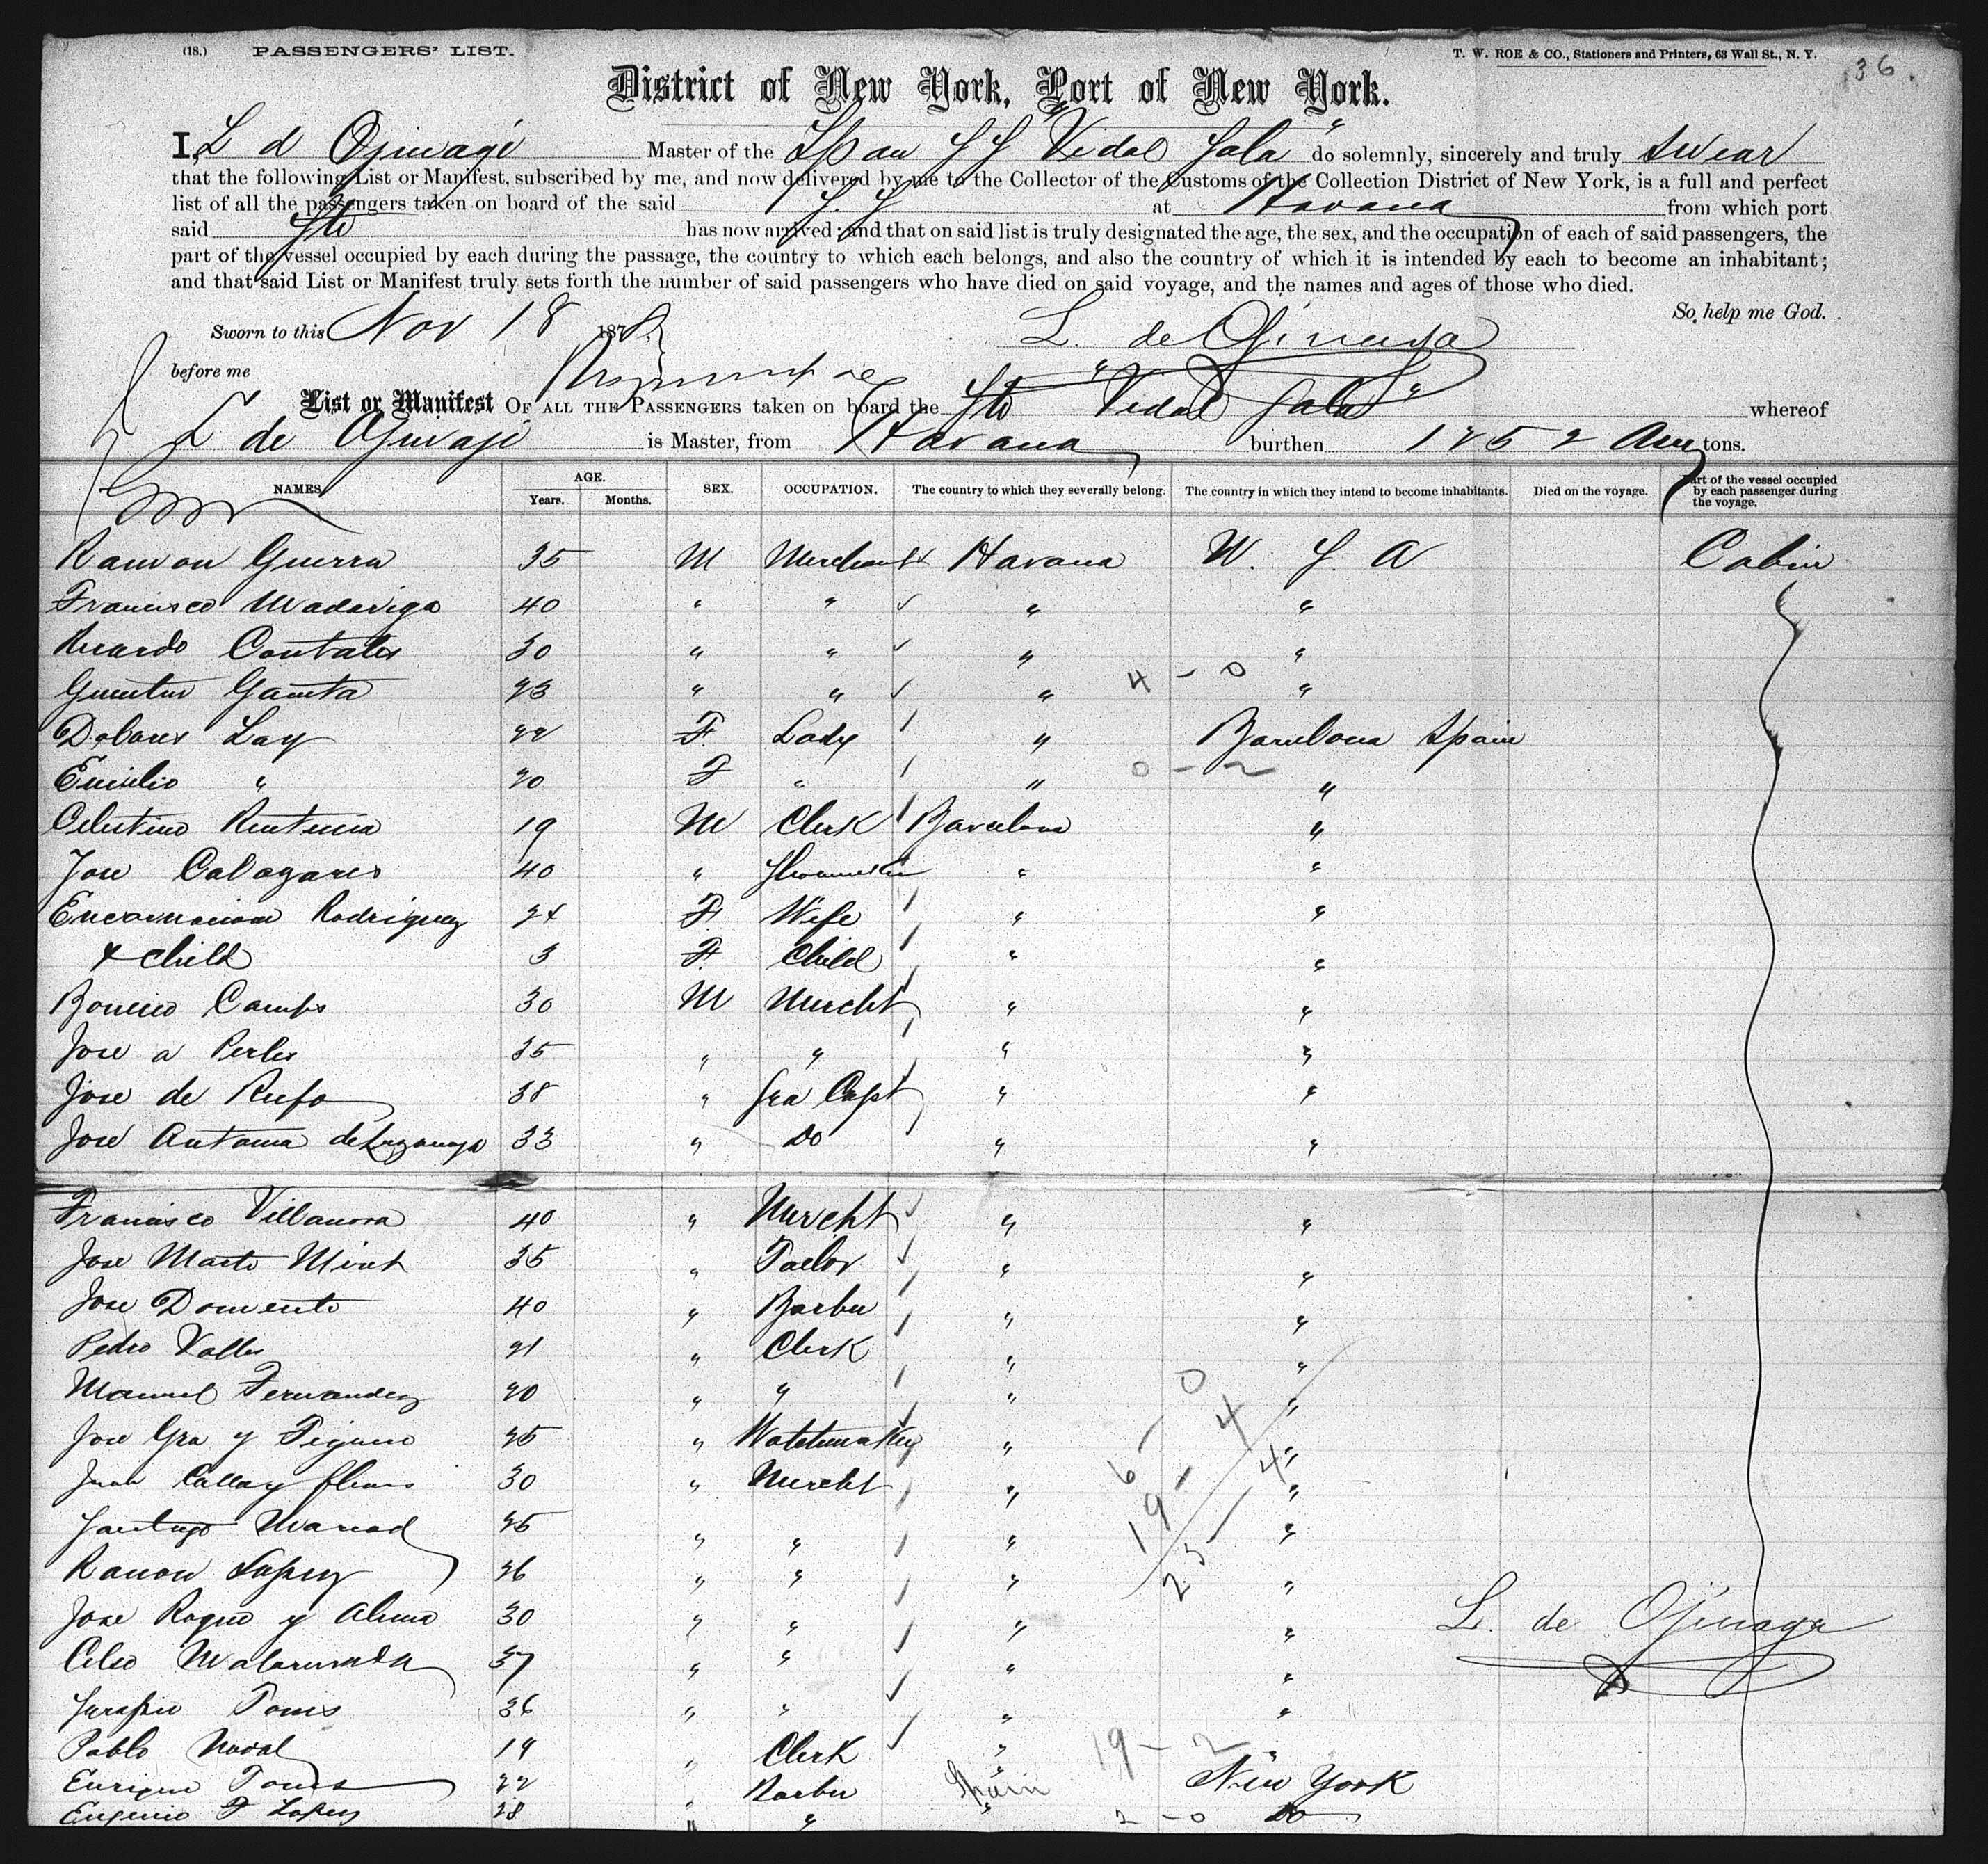 (18.) PASSENGERS' LIST.
T. W. ROE & CO., Stationers and Printers, 63 Wall St., N. Y.
136.
District of New York, Port of New York.
I, L d Ojinaga Master of the Span SS "Vidal Sala" do solemnly, sincerely and truly swear
that the following List or Manifest, subscribed by me, and now delivered by me to the Collector of the Customs of the Collection District of New York, is a full and perfect
list of all the passengers taken on board of the said S. S at Havana from which port
said Str has now arrived; and that on said list is truly designated the age, the sex, and the occupation of each of said passengers, the
part of the vessel occupied by each during the passage, the country to which each belongs, and also the country of which it is intended by each to become an inhabitant;
and that said List or Manifest truly sets forth the number of said passengers who have died on said voyage, and the names and ages of those who died.
So help me God.
Sworn to this Nov 18 187
L. de Ojinaga
before me
List or Manifest OF ALL THE PASSENGERS taken on board the Str "Vidal Sala" whereof
L de Ojinaga is Master, from Havana burthen 1252 tons.
NAMES. AGE. Years. Months. SEX. OCCUPATION. The country to which they severally belong. The country in which they intend to become inhabitants. Died on the voyage. Part of the vessel occupied by each passenger during the voyage.
Ramon Guerra 35 M Merchant Havana U. S. A Cabin
Francisco Madariga 40 " " " "
Ricardo 30 " " " "
23 " " " "
4 - 0
Dolores Lay 22 F. Lady " Barcelona Spain
Emilio " 20 F " " "
0 - 2
Celestino Renteria 19 M Clerk Barcelona "
Jose Calagares 40 " " "
Encarnacion Rodriguez 24 F. Wife " "
& child 3 F. Child " "
Camps 30 M Mercht " "
Jose a Perles 35 " " " "
Jose de Rufo 38 " Sea Capt " "
Jose Antonia de 33 " Do " "
Francisco Villanova 40 " Mercht " "
Jose Marto Miret 35 " Taelor " "
Jose Domento 40 " Barber " "
Pedro Valles 21 " Clerk " "
Manuel Fernandez 20 " " " "
Jose Gra y 25 " Watchmaker " "
6 - 0
Juan 30 " Mercht " "
19 - 4
Santiago 25 " " " "
25 - 4
Ramon Lopez 26 " " " "
Jose Roque y 30 " " " "
L. de Ojinaga
Celso 37 " " " "
Serafin Tomis 36 " " " "
Pablo Nadal 19 " Clerk " "
19 - 2
Enrique 22 " Barber Spain New York
Eugenio F Lopez 28 " " " Do
2 - 0